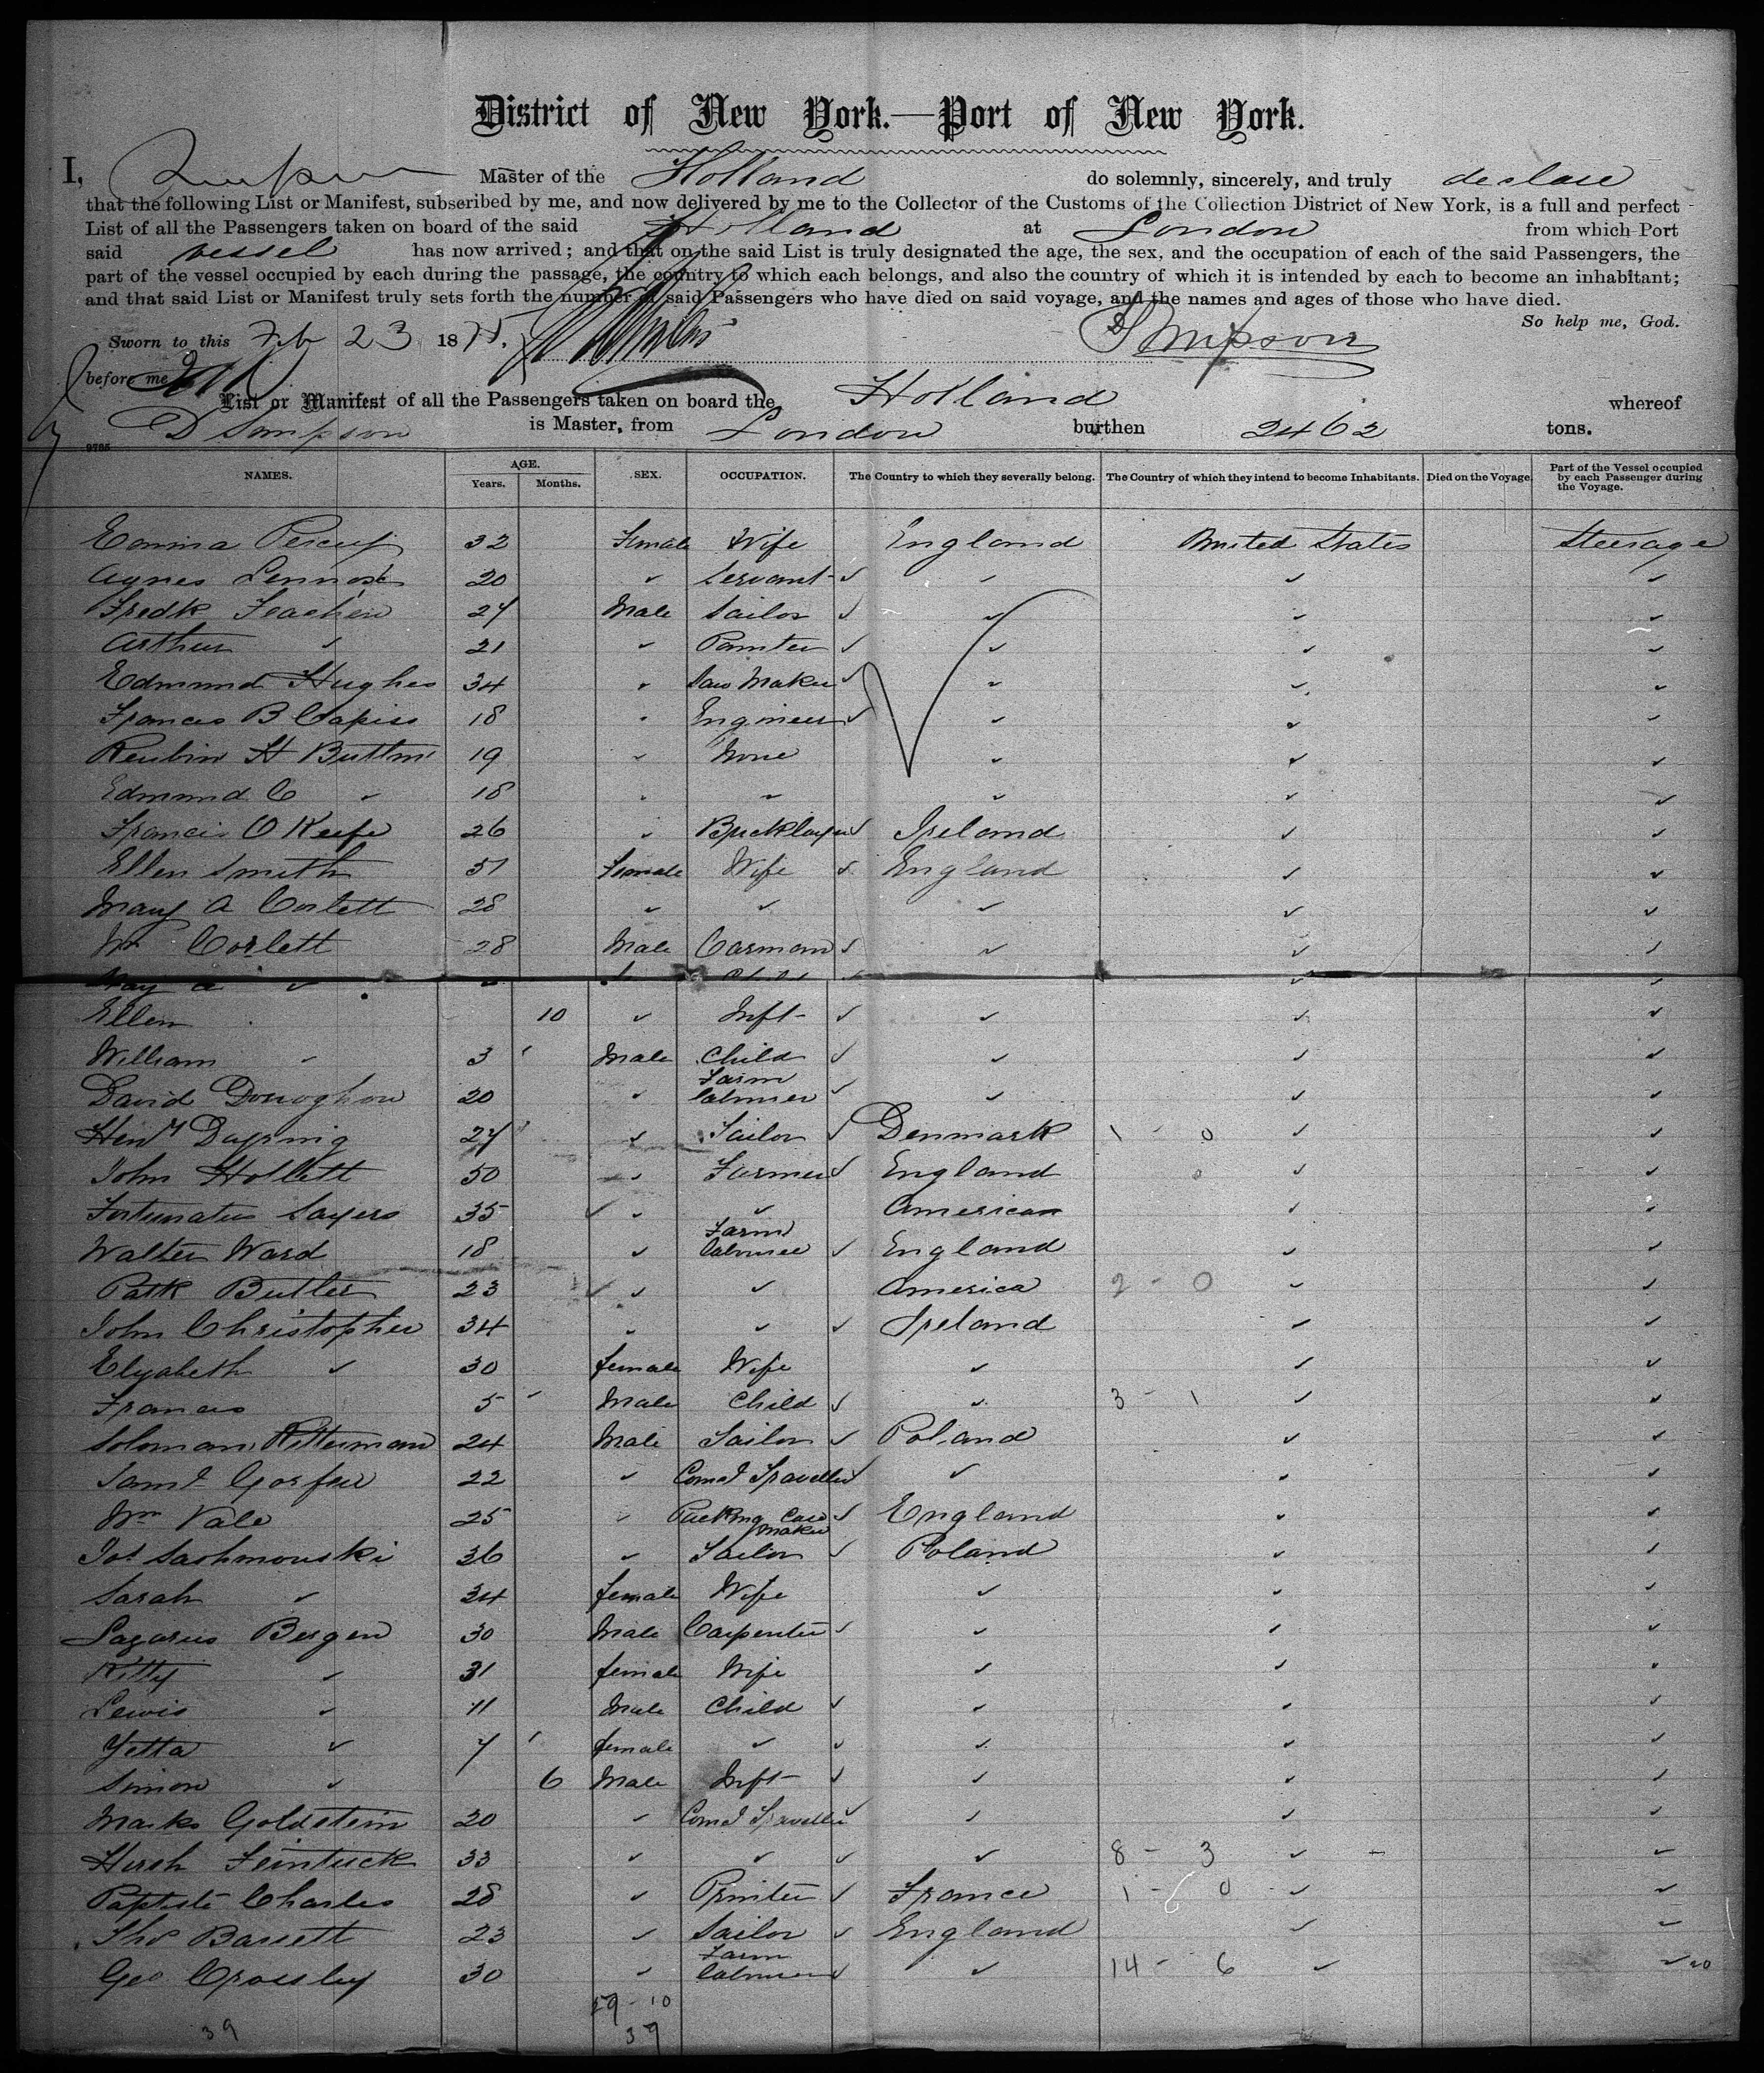 District of New York.—Port of New York.
I, Simpson Master of the Holland do solemnly, sincerely, and truly declare
that the following List or Manifest, subscribed by me, and now delivered by me to the Collector of the Customs of the Collection District of New York, is a full and perfect
List of all the Passengers taken on board of the said Holland at London from which Port
said vessel has now arrived; and that on the said List is truly designated the age, the sex, and the occupation of each of the said Passengers, the
part of the vessel occupied by each during the passage, the country to which each belongs, and also the country of which it is intended by each to become an inhabitant;
and that said List or Manifest truly sets forth the number of said Passengers who have died on said voyage, and the names and ages of those who have died.
So help me, God.
Sworn to this Feb 23 1875. D Simpson
before me
List or Manifest of all the Passengers taken on board the Holland whereof
D Simpson is Master, from London burthen 2462 tons.
9785
NAMES. AGE. Years. Months. SEX. OCCUPATION. The Country to which they severally belong. The Country of which they intend to become Inhabitants. Died on the Voyage. Part of the Vessel occupied by each Passenger during the Voyage.
Emma Percey 32 Female Wife England United States Steerage
Agnes Lennox 20 " Servant " " "
Fredk 27 Male Sailor " " "
Arthur " 21 " Painter " " "
Edmund Hughes 34 " Saw Maker " " "
Frances B Capiss 18 " Engineer " " "
Reubin H 19 " None " " "
Edmund C " 18 " " " " "
Francis O Keefe 26 " Bricklayer Ireland " "
Ellen Smith 51 Female Wife England " "
Mary A Corlett 28 " " " " "
Wm Corlett 28 Male Carman " " "
May A "
Ellen 10 " Inft " " "
William " 3 Male Child " " "
David Donoghou 20 " Farm labourer " " "
Heny 27 " Sailor Denmark 1 - 0 " "
John Hollett 50 " Farmer England " "
Fortunatus Sayers 35 " " American " "
Walter Ward 18 " Farm labourer England " "
Patk Butler 23 " " America 2 - 0 " "
John Christopher 34 " " Ireland " "
Elizabeth " 30 female Wife " " "
Frances 5 Male Child " 3 - 1 " "
Soloman Ritterman 24 Male Tailor Poland " "
Saml 22 " Coml Traveller " " "
Wm Vale 25 " Packing Case maker England " "
Jos Sachmouski 36 " Tailor Poland " "
Sarah " 34 female Wife " " "
Lazarus Bergen 30 Male Carpenter " " "
Kitty " 31 female Wife " " "
Lewis " 11 Male Child " " "
Yetta " 7 female " " " "
Simon " 6 Male Inft " " "
Marks Goldstein 20 " Coml Traveller " " "
Hirsh Feintuck 33 " " " 8 - 3 " "
Baptiste Charles 28 " Printer France 1 - 0 " "
Thos Bassett 23 " Sailor England " "
Geo Crossley 30 " Farm labourer " 14 - 6 " "
29 - 10
39 39